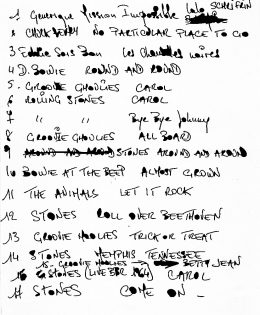 1 Generique Mission Impossible Lalo SCHIFRIN
2 CHUCK BERRY NO PARTICULAR PLACE TO GO
3 Eddie Sois Bon Les Chaussettes noires
4 D. BOWIE ROUND AND ROUND
5. GROOVIE GHOULIES CAROL
6 ROLLING STONES CAROL
7 " " Bye Bye Johnny
8 GROOVIE GHOULIES ALL BOARD
9 STONES AROUND AND AROUND
10 BOWIE AT THE BEEB ALMOST GROWN
11 THE ANIMALS LET IT ROCK
12 STONES ROLL OVER BEETHOVEN
13 GROOVIE GHOULIES TRICK OR TREAT
14 STONES MEMPHIS TENNESSEE
15. GROOVIE GHOULIES BETTY JEAN
16 STONES (LIVE BBC 1964) CAROL
17 STONES COME ON